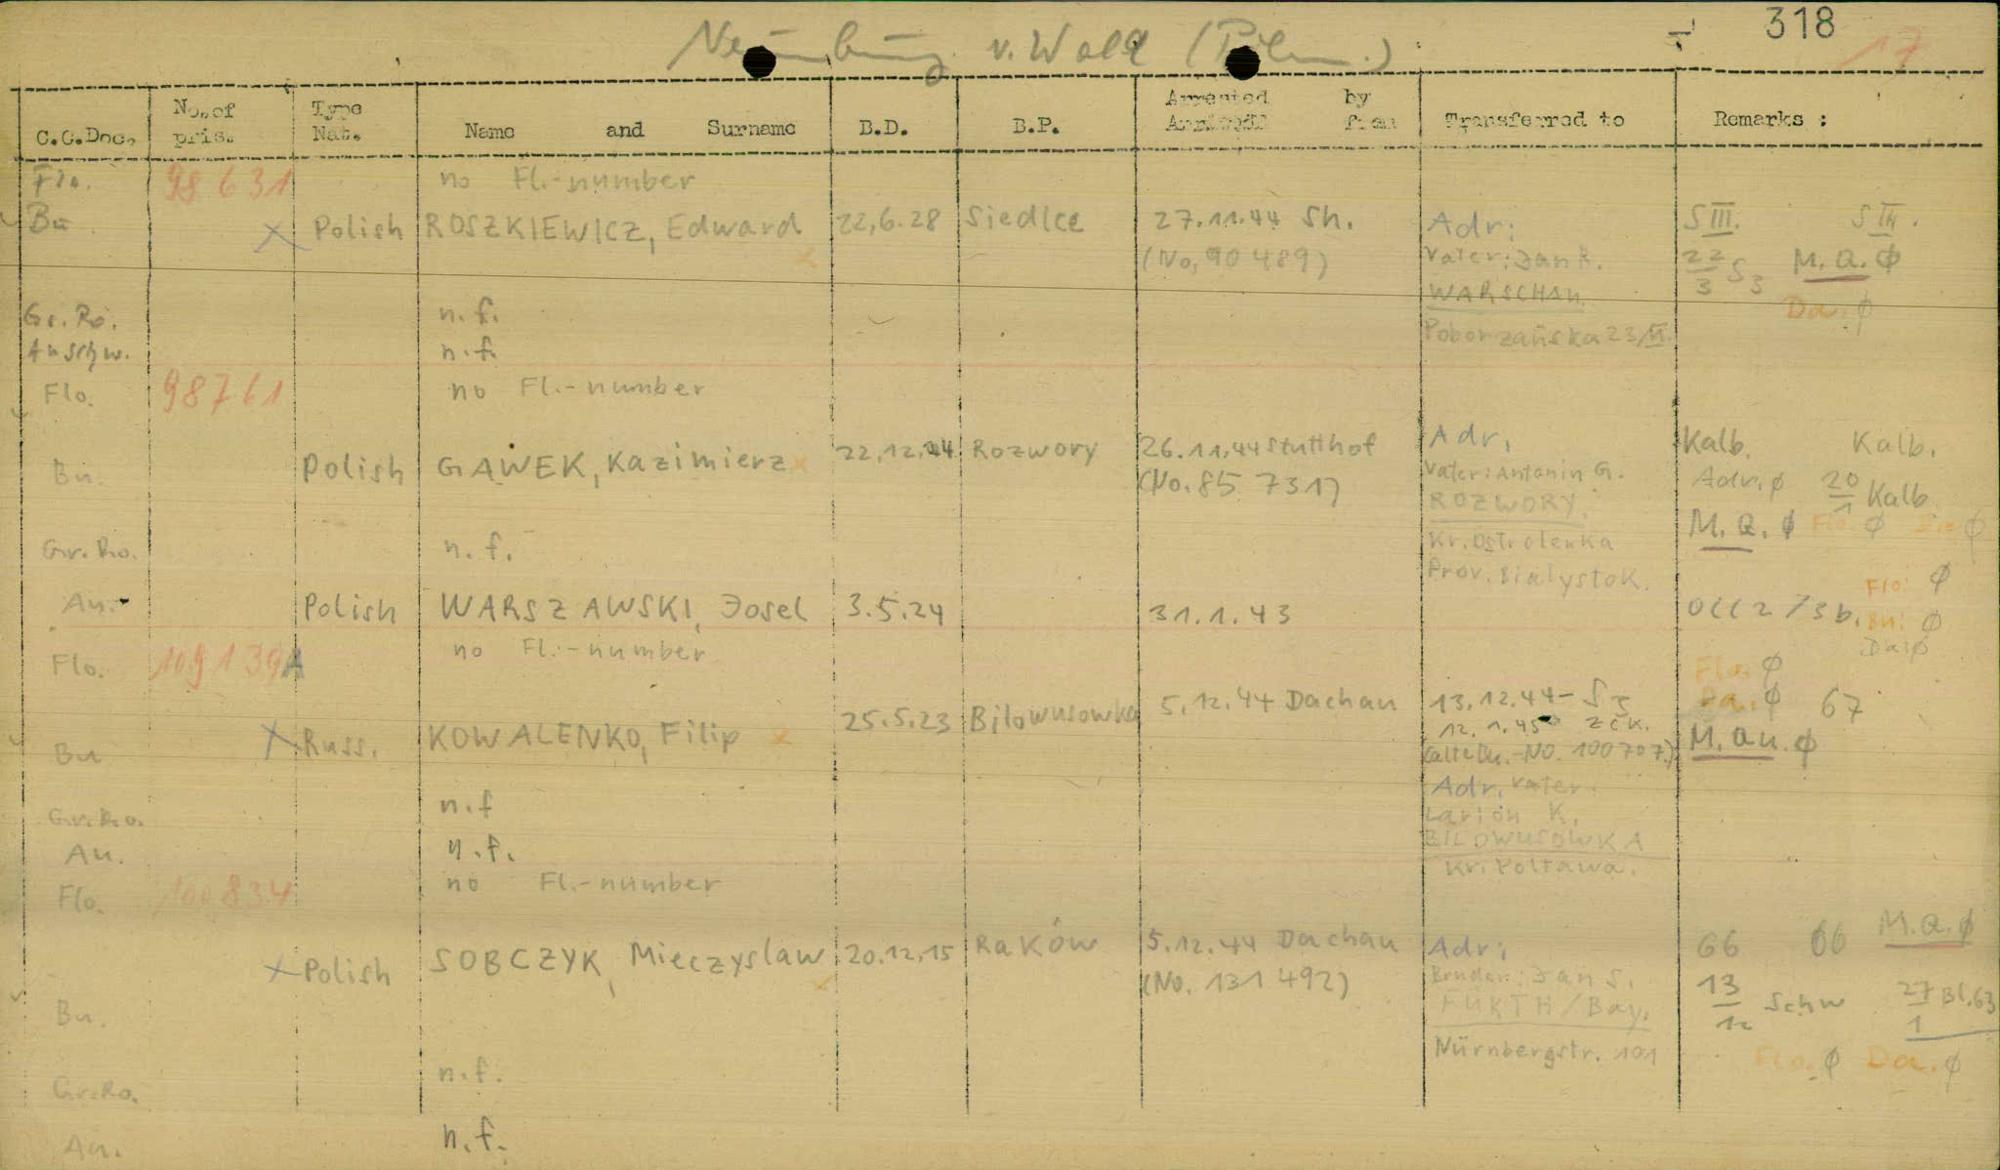 318
17
Neunburg v. Wald
C.C.Doc. No. of pris. Type Nat. Name and Surname B.D. B.P. Arrested by Arrived from Transferred to Remarks :
Flo. 98631 no Fl.-number
Bu X Polish ROSZKIEWICZ, Edward 22.6.28 Siedlce 27.11.44 Sh. Adr: S III. S III.
(No, 90 489) Vater: Jan R. 22/3 S3 M.a. ø
WARSCHAU Da. ø
Gr.Ro. n.f. Poborzańska 23/II.
Auschw. n.f.
Flo. 98761 no Fl.-number
Bu. Polish GAWEK, Kazimierz x 22.12.24 Rozwory 26.11.44 Stutthof Adr, Kalb. Kalb.
(No. 85 731) Vater: Antonin G. Adr. ø 20/1 Kalb
ROZWORY. M.a. ø Flo. ø Da. ø
Gr.Ro. n.f. Kr. Ostrolenka
Prov. Bialystok. Flo: ø
Au. Polish WARSZAWSKI, Josel 3.5.24 31.1.43 Occ 2/3b. Bu: ø
Da: ø
Flo. 109139A no Fl.-number Flo. ø
Bu X Russ. KOWALENKO, Filip x 25.5.23 Bilowusowka 5.12.44 Dachau 13.12.44 - S3 Da. ø 67
12.1.45 zck. M.au. ø
(alte Bu.-NO. 100707)
Gr.Ro. n.f Adr. Vater
Larion K.
Au. n.f. BILOWUSOWKA
Flo. 100834 no Fl.-number Kr. Poltawa.
Bu. X Polish SOBCZYK, Mieczyslaw x 20.12.15 Raków 5.12.44 Dachau Adr: 66 66 M.a. ø
(No. 131 492) Bruder: Jan S. 13/12 Schw 27/1 Bl.63
FÜRTH/Bay.
Nürnbergstr. 101 Flo. ø Da. ø
Gr.Ro. n.f.
Au. n.f.